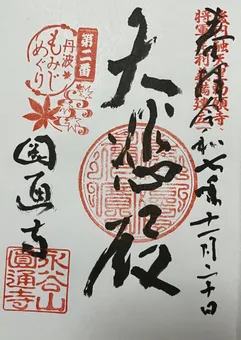 奉拝 令和七年十一月二十日
大悲殿
第二番
丹波
もみじ
めぐり
圓通寺
永谷山
圓通寺